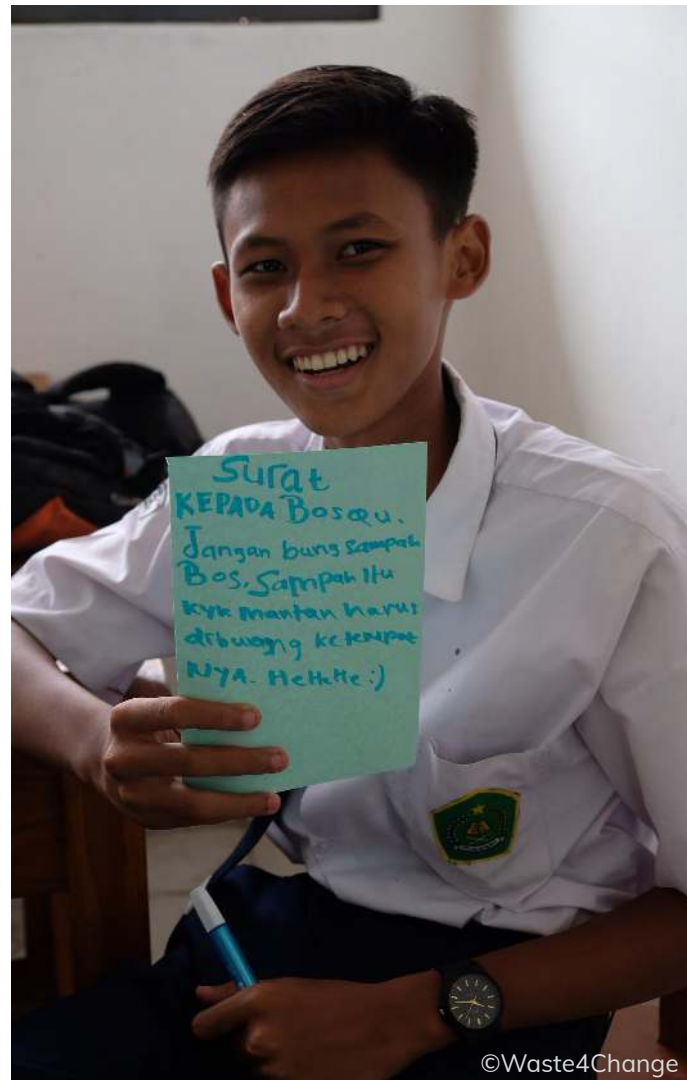 Surat
KEPADA Bosqu.
Jangan buang sampah
Bos, Sampah Itu
kyk mantan harus
dibuang ketempat
NYA. HeHeHe :)
©Waste4Change